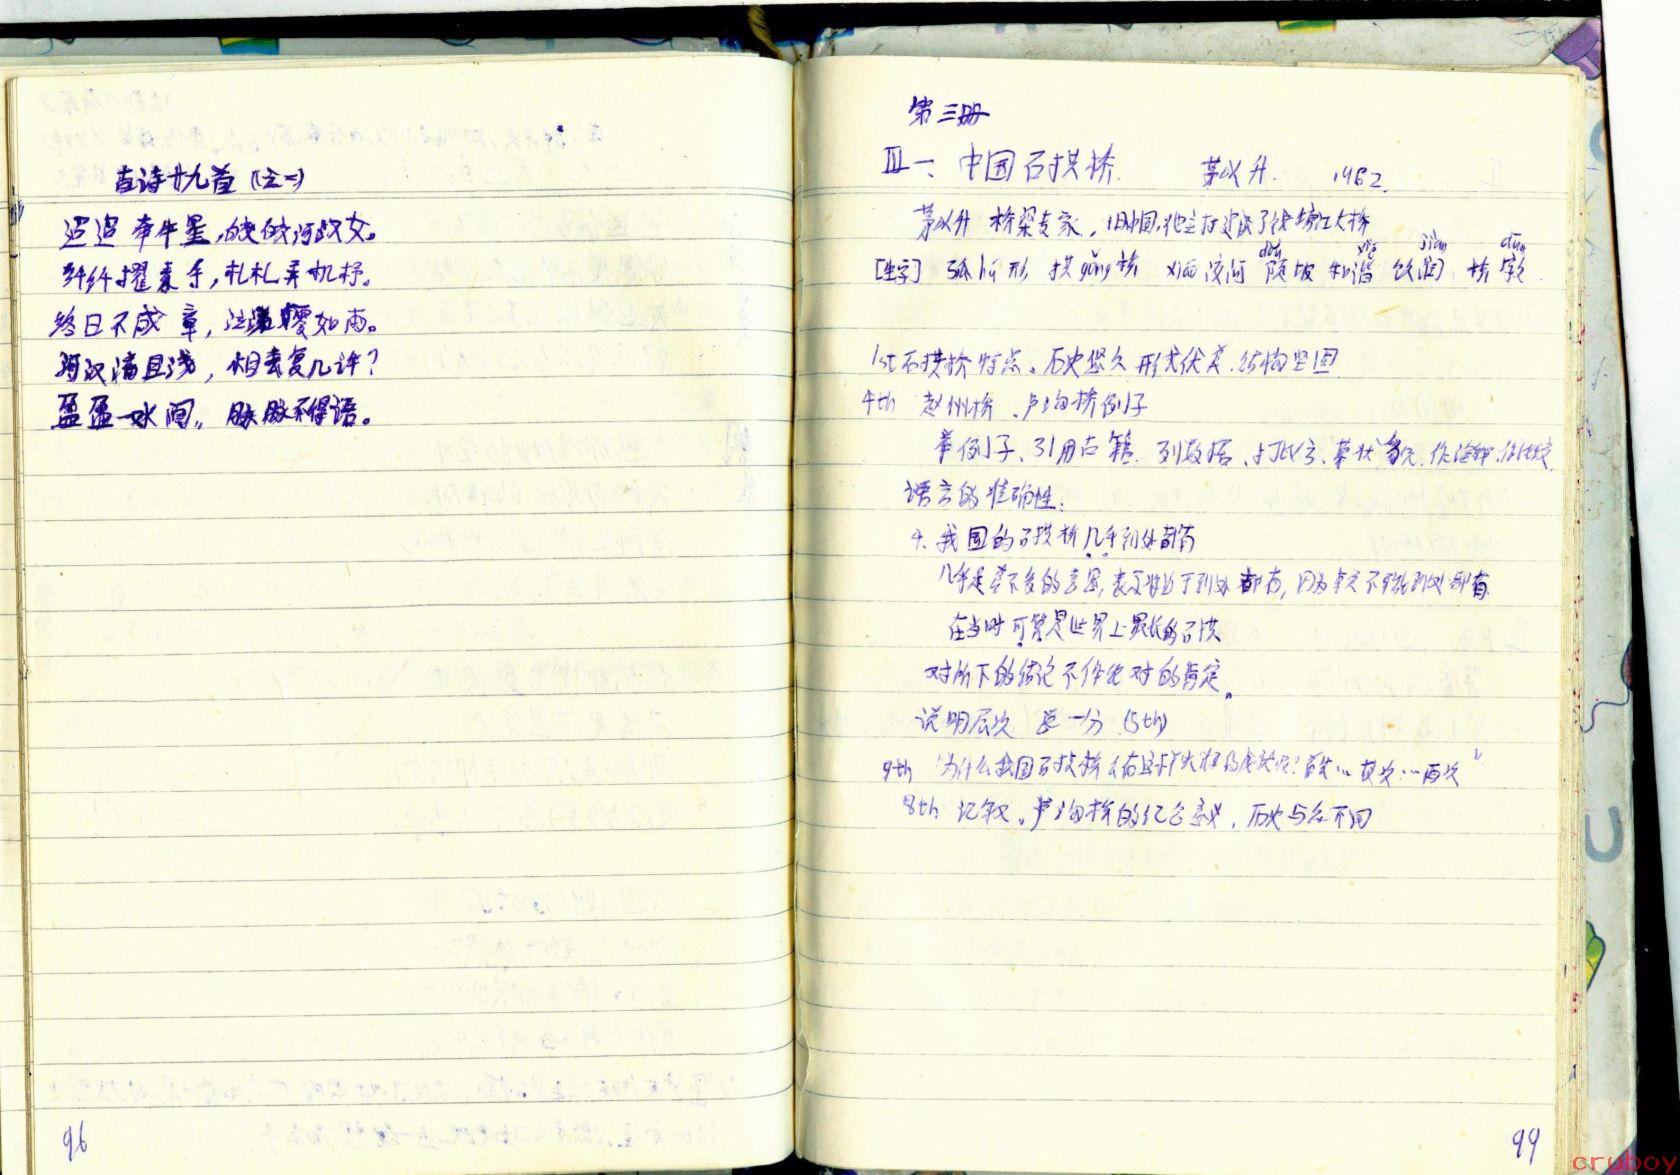 古诗十九首（之一）
迢迢牵牛星，皎皎河汉女。
纤纤擢素手，札札弄机杼。
终日不成章，泣涕零如雨。
河汉清且浅，相去复几许？
盈盈一水间，脉脉不得语。
96
第三册
Ⅲ一、中国石拱桥 茅以升 1962.
茅以升 桥梁专家，旧中国，他主持建设了钱塘江大桥
[生字] 弧 形 拱gǒng桥 xiáo洨河 陡dǒu坡 和谐xié jiàn 桥 dūn
1st石拱桥特点、历史悠久 形式优美 结构坚固
4th 赵州桥、卢沟桥例子
举例子、引用古籍、列数据、打比方、摹状貌、作诠释、作比较
语言的准确性:
4. 我国的石拱桥几乎到处都有
几乎是差不多的意思，表示 于到处都有，因为 不 到处都有
在当时可算是世界上最长的石拱
对所下的结论不作绝对的肯定。
说明层次 总一分 (5th)
9th “为什么我国石拱桥 有 的 ？首先…其次…再次”
8th 记叙、卢沟桥的纪念意义、历史
99
cruboy